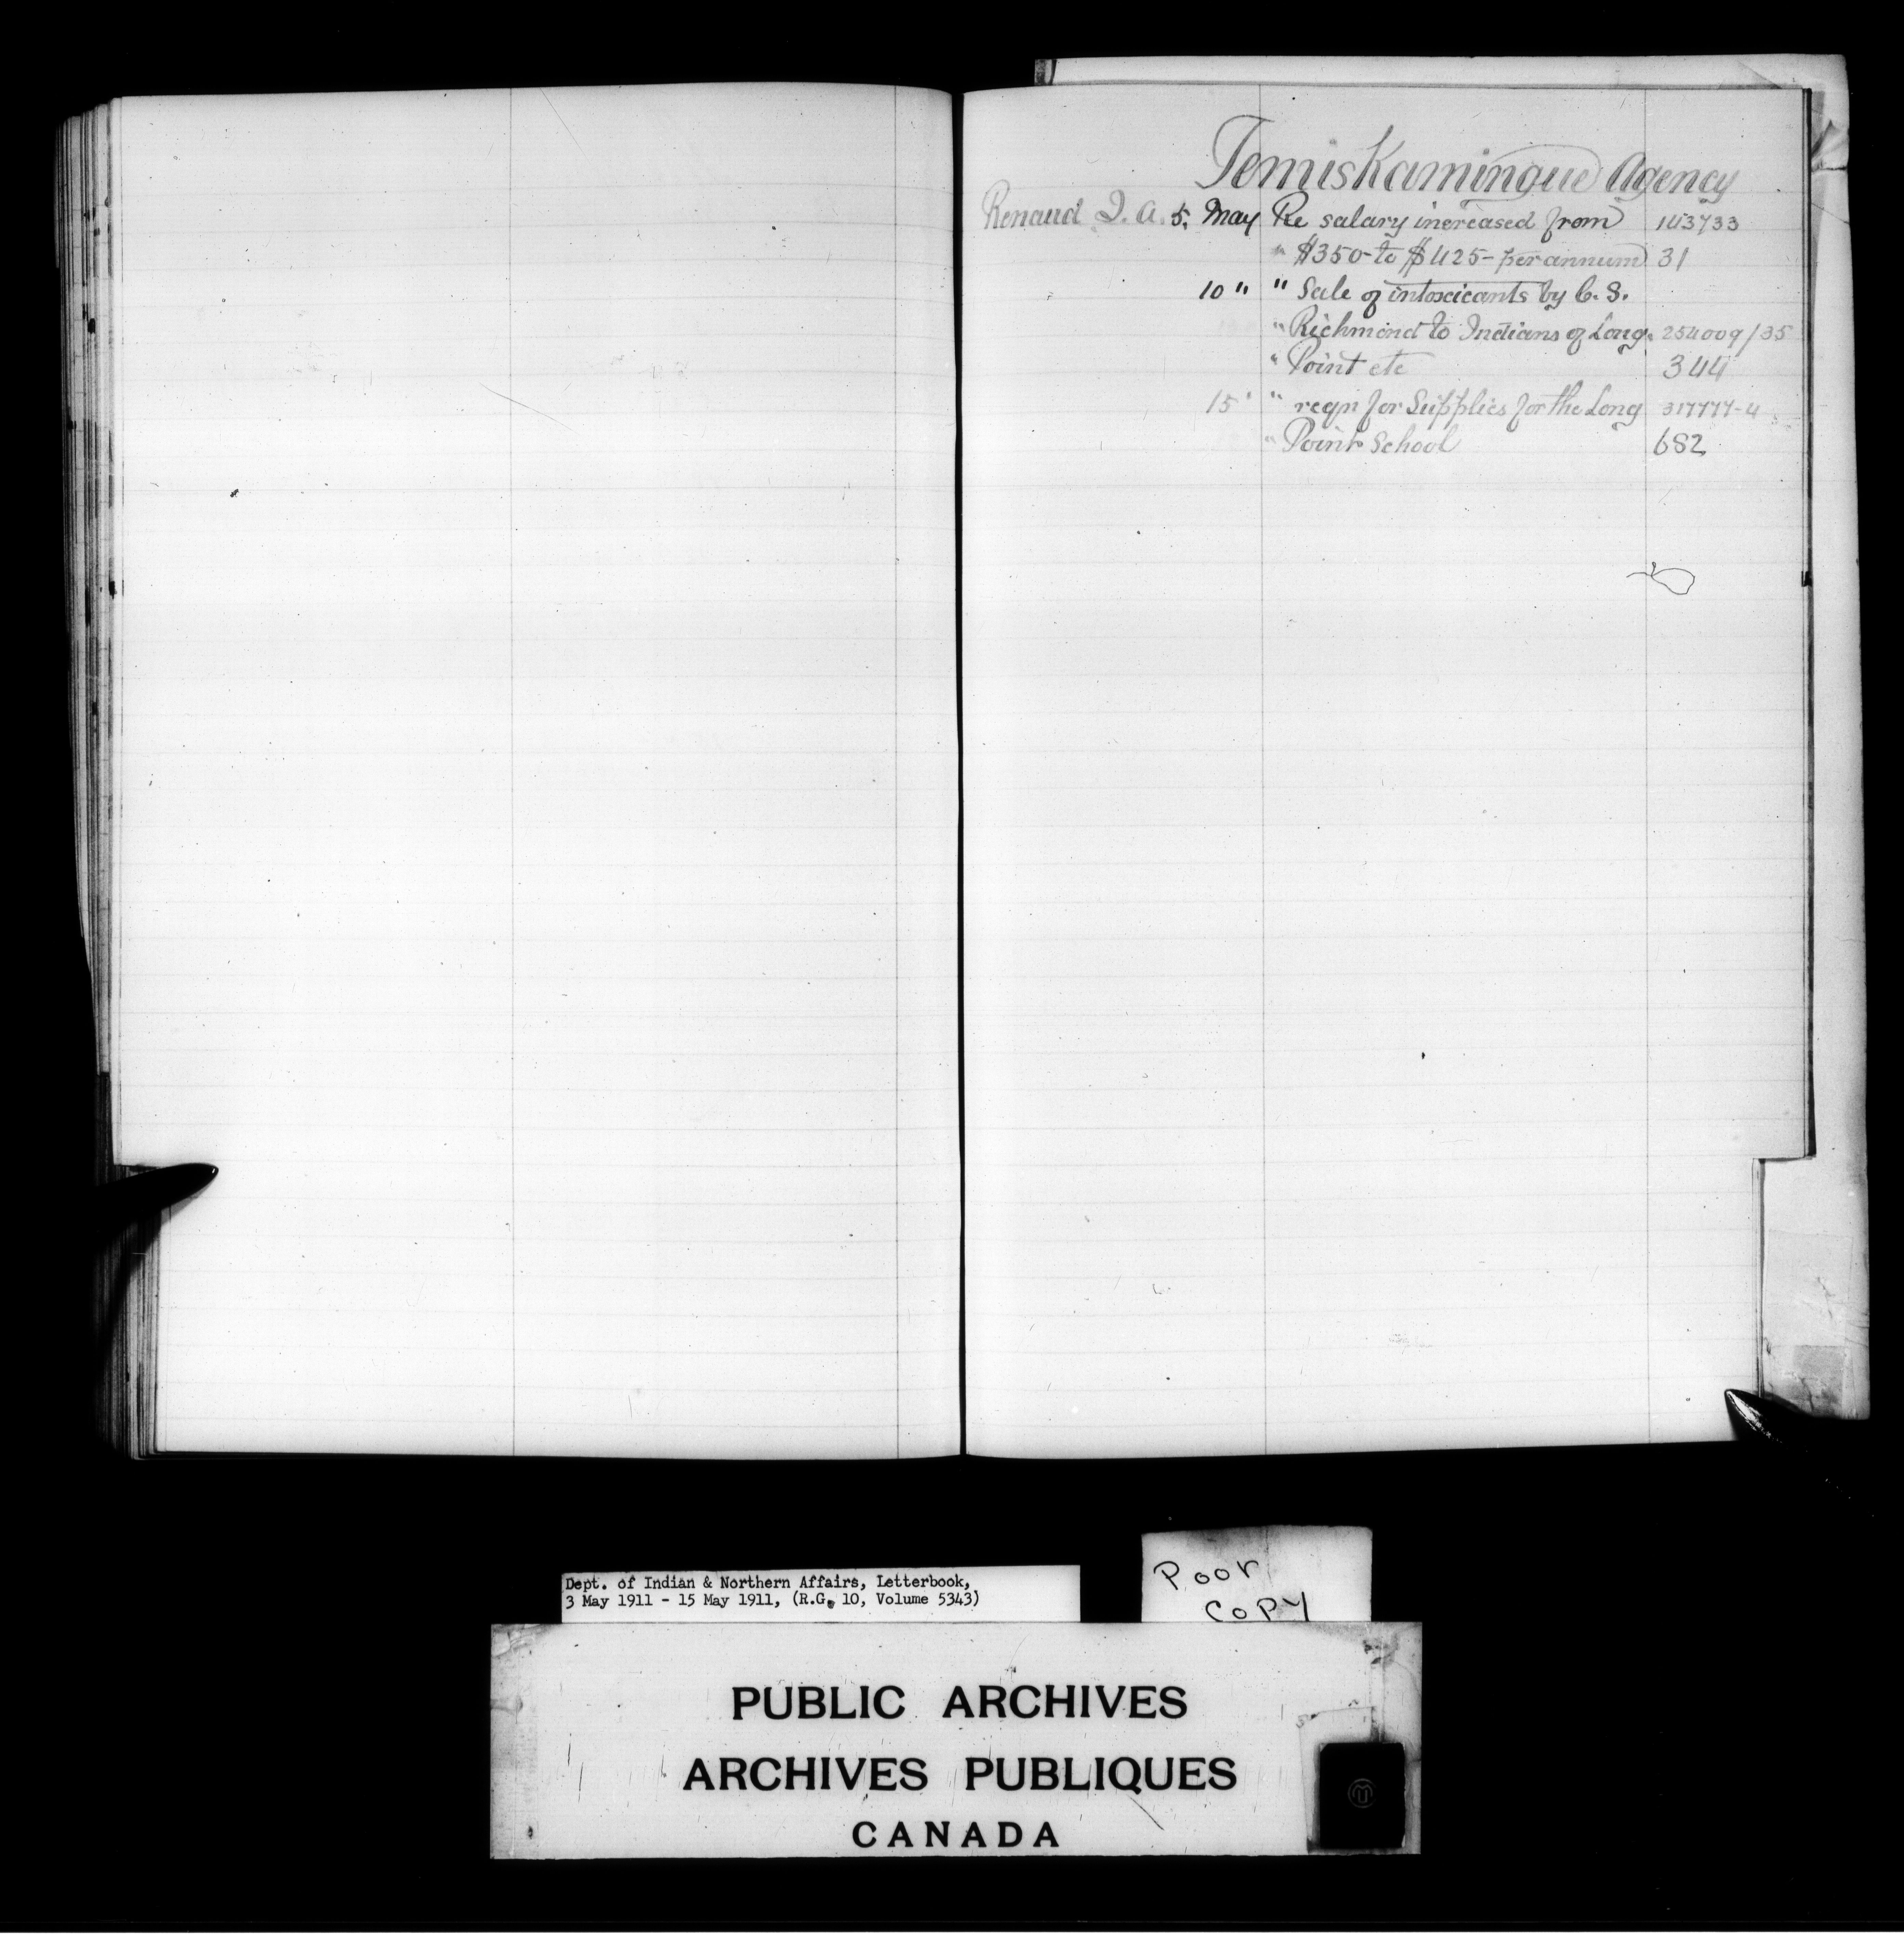 Temiskamingue Agency
Renaud I. A. 5. May Re salary increased from 143733
" $350- to $425- per annum 31
10 " " Sale of intoxicants by C. S.
" Richmond to Indians of Long. 254009/35
" Point etc 344
15 " " reqn for Supplies for the Long 317777-4
" Point School 682
Dept. of Indian & Northern Affairs, Letterbook,
3 May 1911 - 15 May 1911, (R.G. 10, Volume 5343)
Poor
Copy
PUBLIC ARCHIVES
ARCHIVES PUBLIQUES
CANADA